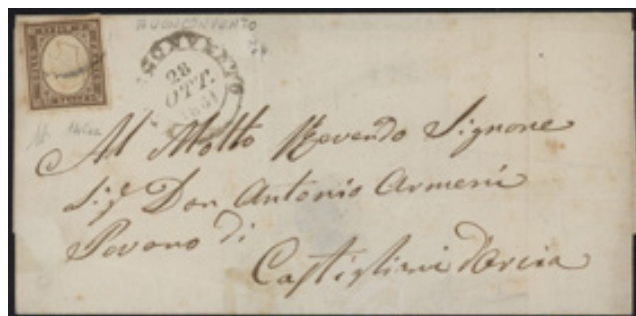 BUONCONVENTO
28
OTT.
Al Molto Revendo Signore
Sig Don Antonio Armeni
Povano di
Castiglioni d'Orcia